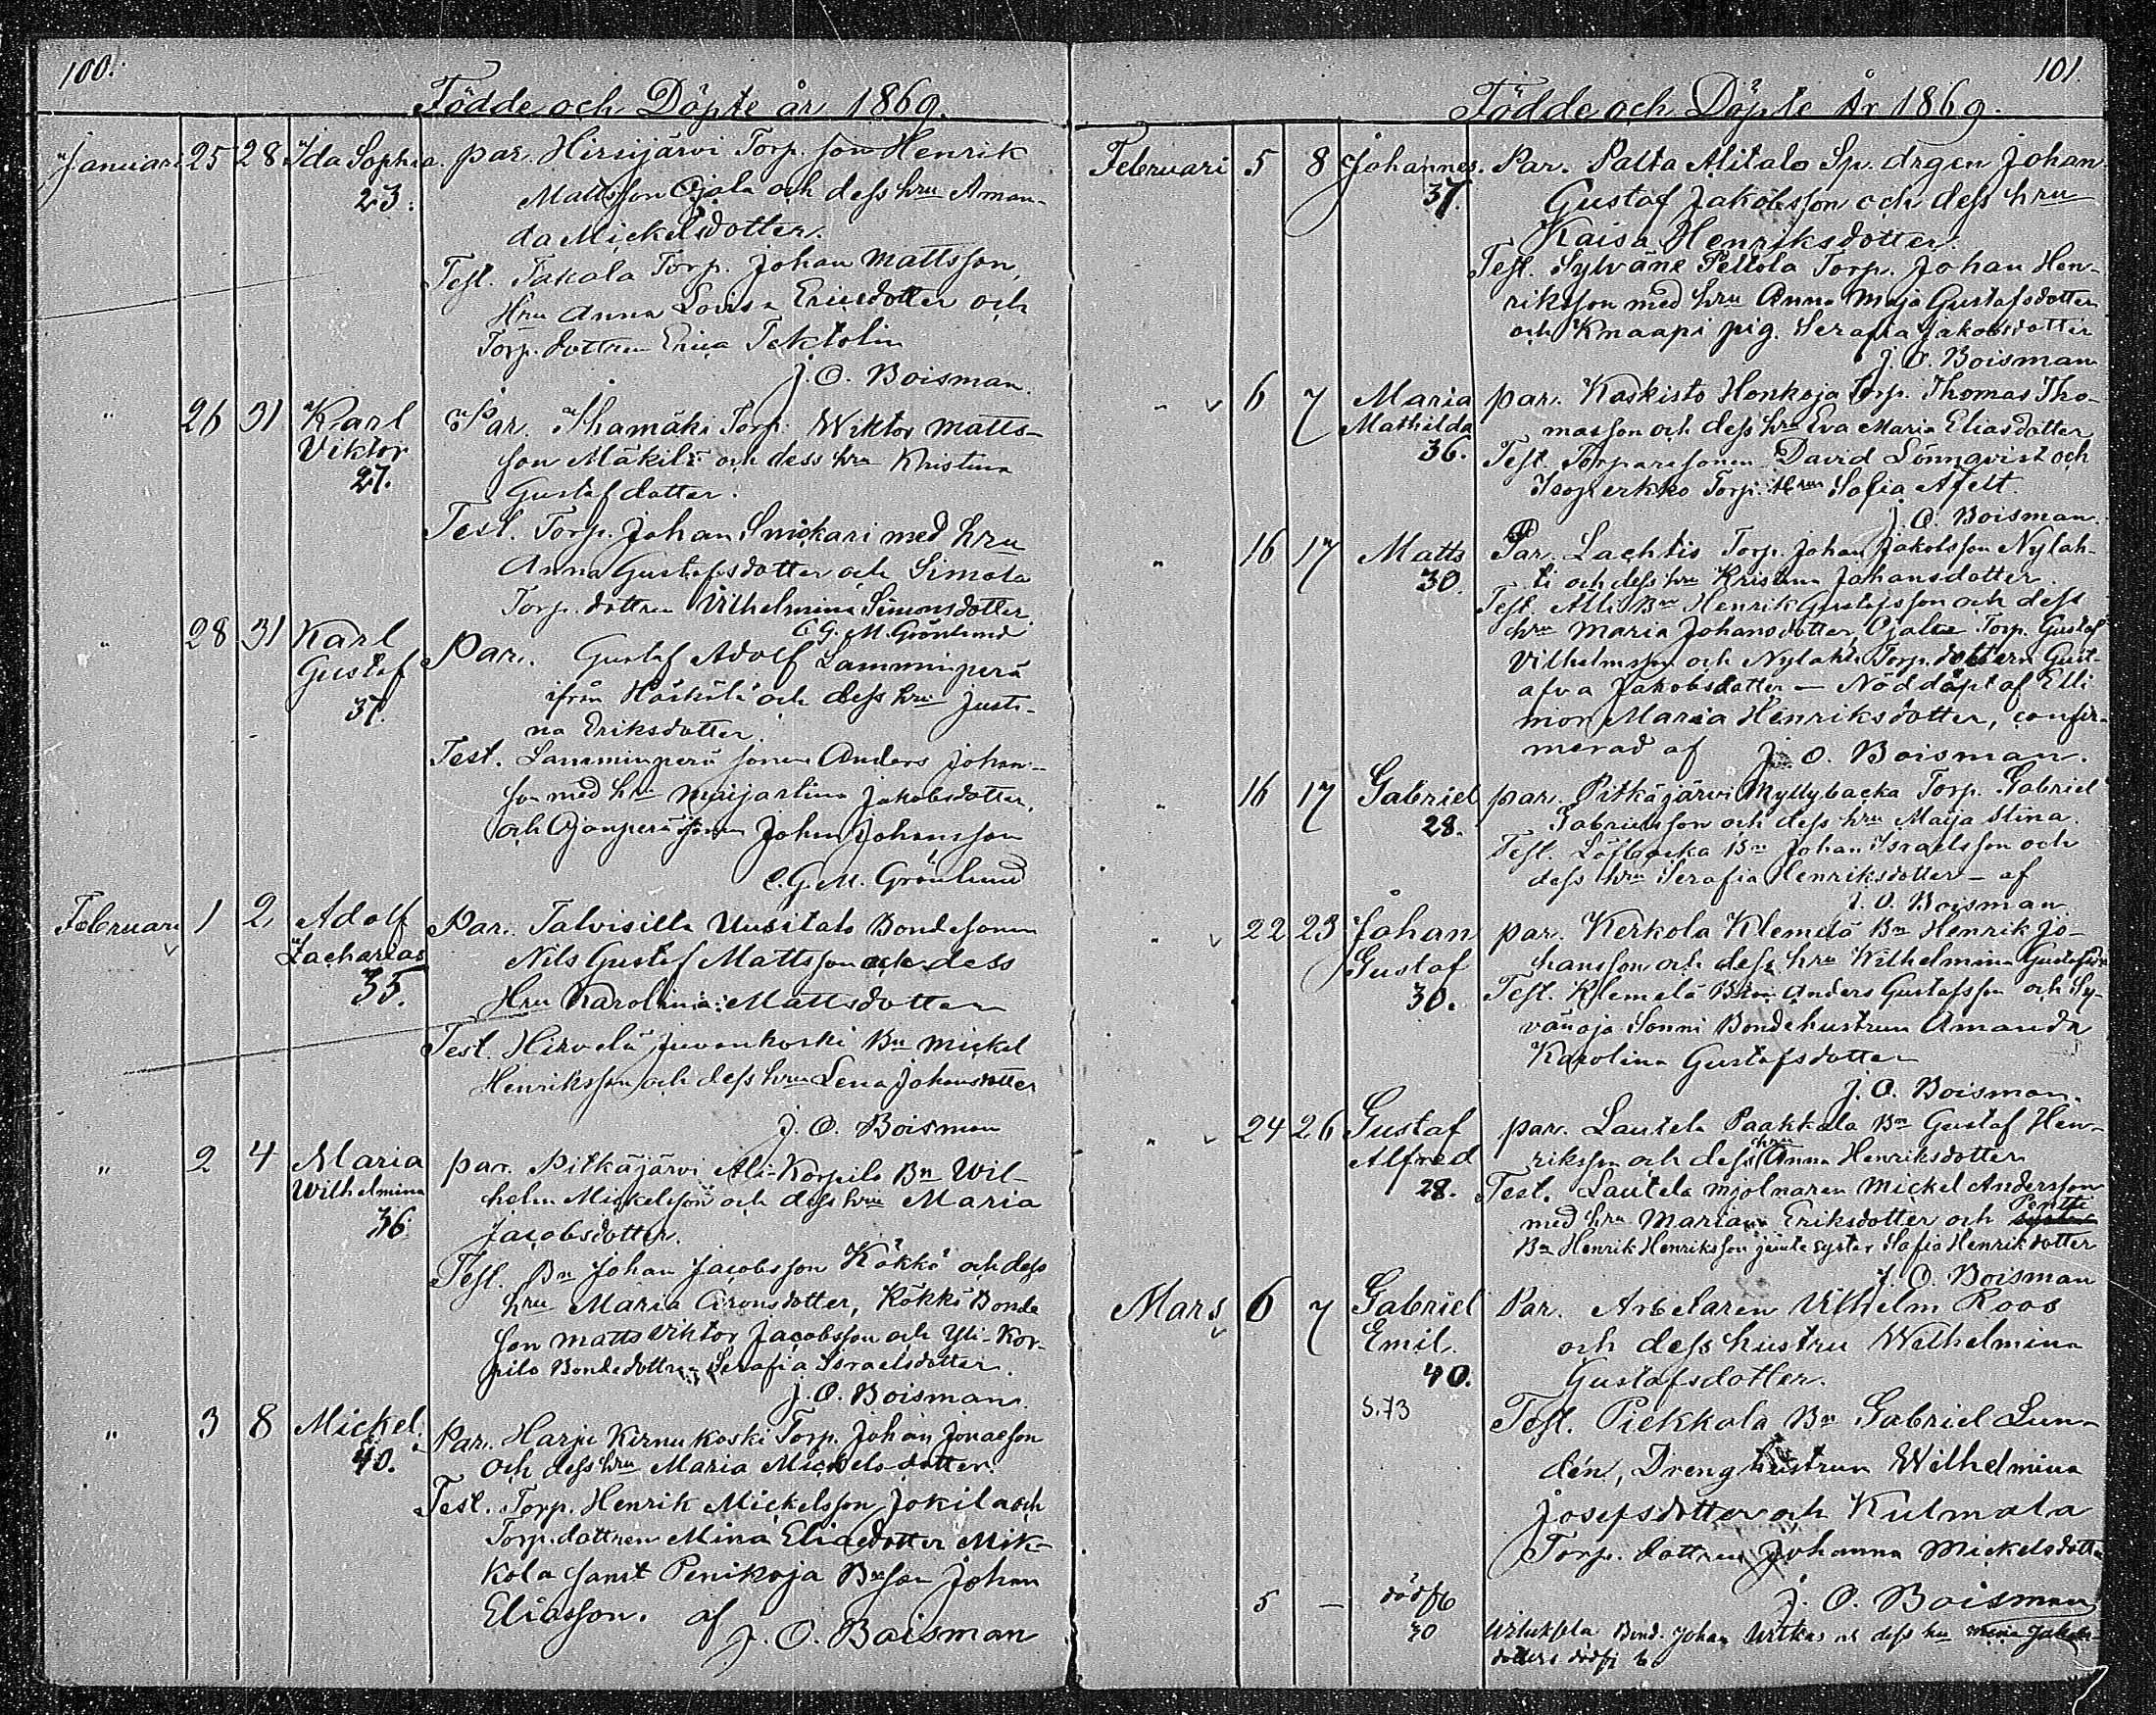 100.
Födde och Döpte år 1869.
Januari 25 28 Ida Sophia. par. Hirsijärvi Torp. son Henrik
23. Mattsson Ojala och dess hru Aman-
da Mickelsdotter.
Test. Takala Torp. Johan Mattsson,
Hru Anna Lovisa Ericsdotter och
Torp. dottren Erica Tektolin
J. O. Boisman.
" 26 31 Karl Par. Torp. Wiktor Matts-
Viktor son Mäkilä och dess hru Kristina
27. Gustafdotter.
Test. Torp. Johan Smickari med hru
Anna Gustafsdotter och Simola
Torp. dottren Vilhelmina Simonsdotter.
C. G. M. Grönlund
" 28 31 Karl Par. Gustaf Adolf Lamminperä
Gustaf ifrån och dess hru Justi-
37. na Eriksdotter.
Test. Lamminperä sonen Anders Johan-
son med hru Maijastina Jakobsdotter,
och Ojanperä sonen Johan Johansson
C. G. M. Grönlund
Februari 1 2 Adolf Par. Talvisilla Uusitalo Bondesonen
Zacharias Nils Gustaf Mattsson och dess
35. Hru Karolina Mattsdotter
Test. Hirvelä Juvankoski Bn Mickel
Henriksson och dess hru Lena Johansdotter
J. O. Boisman
" 2 4 Maria par. Pitkäjärvi Ali-Korpilo Bn Wil-
Wilhelmina helm Mickelsson och dess hru Maria
36 Jacobsdotter.
Test. Bn Johan Jacobsson Kökkö och dess
hru Maria Aronsdotter, Kökkö Bonde
son Matts Viktor Jacobsson och Yli-Kor-
pilo Bondedottren Serafia Israelsdotter.
J. O. Boisman.
" 3 8 Mickel. Par. Harju Kirnukoski Torp. Johan Jonasson
40. och dess hru Maria Mickelsdotter.
Test. Torp. Henrik Mickelsson Jokila och
Torp. dottren Mina Eliedotter Mik-
kola samt Penikoja Bnson Johan
Eliasson. af J. O. Boisman
101.
Födde och Döpte År 1869.
Februari 5 8 Johannes. Par. Palta Alitalo Sp. drgen Johan
37. Gustaf Jakobsson och dess hru
Kaisa Henriksdotter.
Test. Sylväne Peltola Torp. Johan Hen-
riksson med hru Anna Maja Gustafsdotter
och Knaapi pig. Serafia Jakobsdotter
J. O. Boisman
" 6 7 Maria par. Koskisto Honkoja Torp. Thomas Tho-
Mathilda masson och dess hru Eva Maria Eliasdotter
36. Test. Torparesonen David Lönnqvist och
Isoperkko Torp. Hru Sofia Afelt.
J. O. Boisman.
" 16 17 Matts Par. Lachtis Torp. Johan Jakobsson Nylah-
30. ti och dess hru Kristina Johansdotter.
Test. Alli Bn Henrik Gustafsson och dess
hru Maria Johansdotter, Ojala Torp. Gustaf
Vilhelmsson och Nylahti Torp. dottern Gust-
afva Jakobsdotter — Nöddöpt af Elli
mor Maria Henriksdotter, confir-
merad af J. O. Boisman.
" 16 17 Gabriel par. Pitkäjärvi Myllybacka Torp. Gabriel
28. Gabrielsson och dess hru Maija Stina.
Test. Löfbacka Bn Johan Israelsson och
dess hru Serafia Henriksdotter — af
J. O. Boisman
" 22 23 Johan par. Kerkola Klemelä Bn Henrik Jo-
Gustaf hansson och dess hru Wilhelmina
30. Test. Klemelä Anders Gustafsson och Sy-
vänoja Sonni Bondehustrun Amanda
Karolina Gustafsdotter
J. O. Boisman.
" 24 26 Gustaf par. Lautela Paakkala Bn Gustaf Hen-
Alfred riksson och dess hru Anna Henriksdotter
28. Test. Lautela mjölnaren Mickel Andersson
med hru Maria Eriksdotter och Pentti
Bn Henrik Henriksson jemte syster Sofia Henriksdotter
J. O. Boisman
Mars 6 7 Gabriel Par. Arbetaren Vilhelm Roos
Emil. och dess hustru Wilhelmina
40. Gustafsdotter.
S. 73 Test. Piekkala Bn Gabriel Lun-
dén, Dreng hustrun Wilhelmina
Josefsdotter och Kulmala
Torp. dottren Johanna Mickelsdotter
J. O. Boisman
5 — dödf
30 Bond. Johan och dess hru Mina Jakobs-
dotters dödf